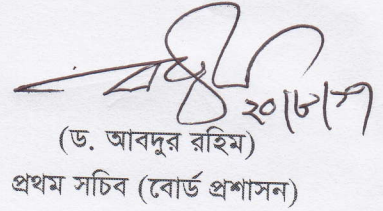 (ড. আবদুর রহিম)
প্রথম সচিব (বোর্ড প্রশাসন)